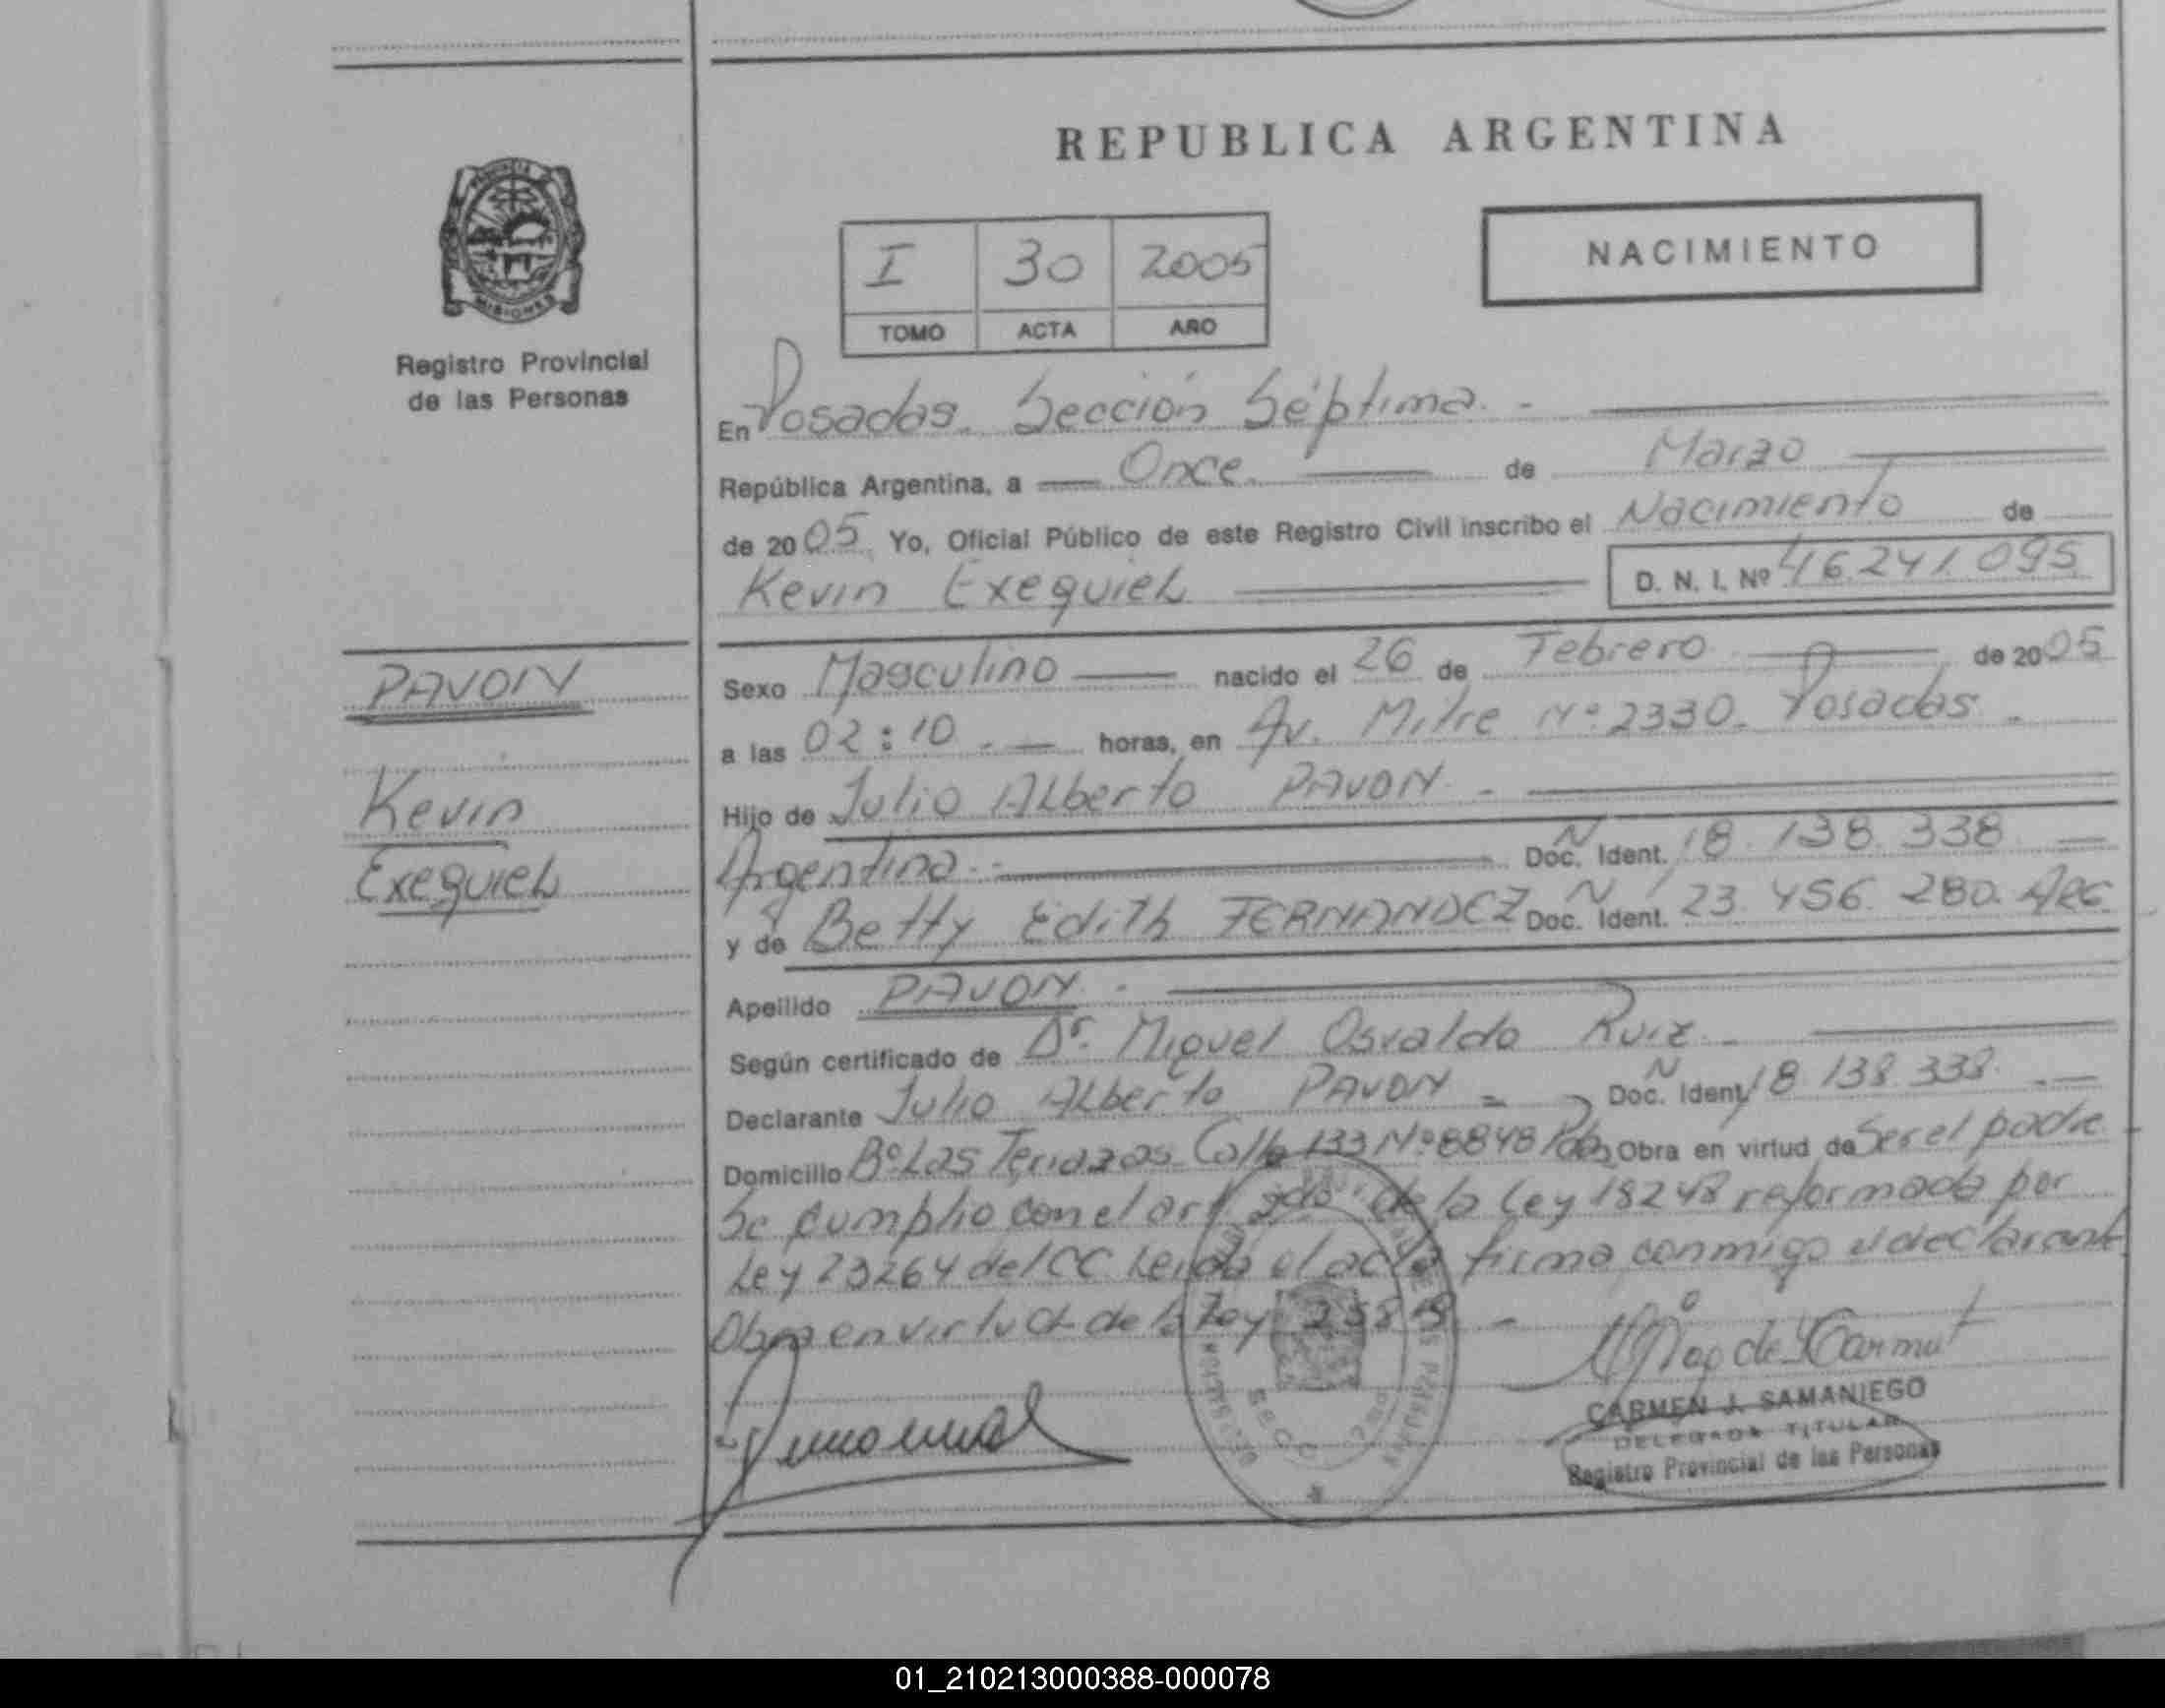 REPUBLICA ARGENTINA
PROVINCIA DE
MISIONES
Registro Provincial
de las Personas
NACIMIENTO
I 30 2005
TOMO ACTA AÑO
En Posadas. Sección Séptima. -
República Argentina, a — Once. — de Marzo
de 2005 Yo, Oficial Público de este Registro Civil inscribo el Nacimiento de
Kevin Exequiel D. N. I. Nº 46.241.095
PAVON
Kevin
Exequiel
Sexo Masculino — nacido el 26 de Febrero — de 2005
a las 02:10. - — horas, en Av. Mitre Nº 2330. Posadas. -
Hijo de Julio Alberto PAVON. -
Argentina. - Doc. N Ident. 18.138.338. —
y de Betty Edith FERNANDEZ Doc. N Ident. 23.456.280. ARG.
Apellido PAVON. -
Según certificado de Dr. Miguel Osvaldo Ruiz. -
Declarante Julio Alberto PAVON - Doc. N Ident. 18.138.338. - —
Domicilio Bº Las Terrazas Calle 133 Nº 8848 Pdas Obra en virtud de Ser el padre
Se cumplio con el art 2do de la Ley 18248 reformada por
Ley 23264 del CC Leida el acta firma conmigo el declarante
Obra en virtud de la Ley -
CARMEN J. SAMANIEGO
DELEGADA TITULAR
Registro Provincial de las Personas
01_210213000388-000078